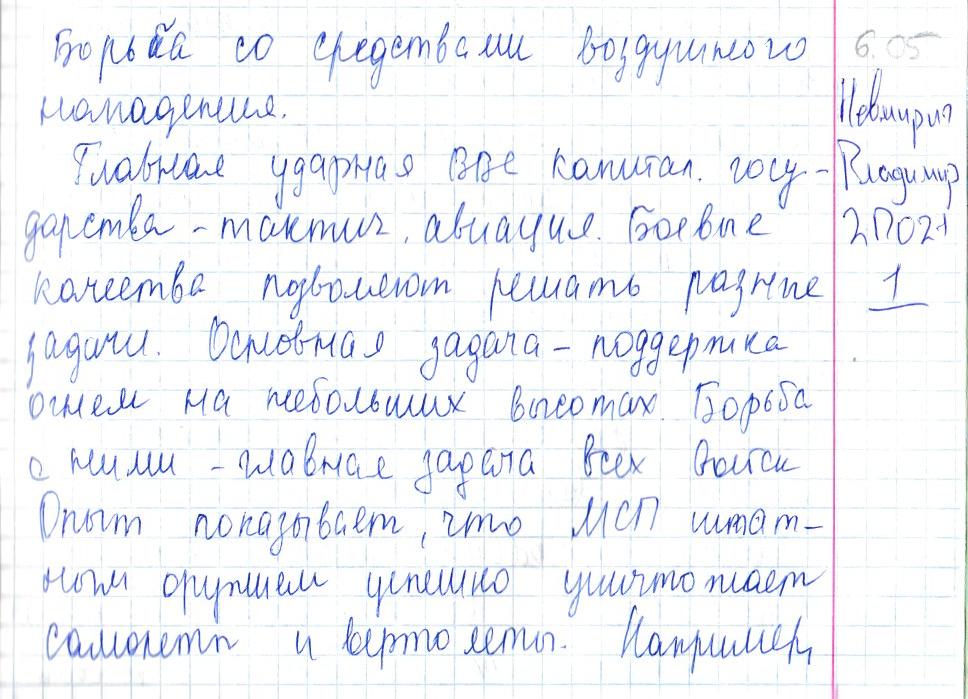 Борьба со средствами воздушного
нападения.
Главная ударная ВВС капитал. госу-
дарства - тактич. авиация. Боевые
качества позволяют решать разные
задачи. Основная задача - поддержка
огнем на небольших высотах. Борьба
с ними - главная задача всех войск
Опыт показывает, что МСП штат-
ным оружием успешно уничтожает
самолеты и вертолеты. Например,
6.05
Владимир
2П021
1